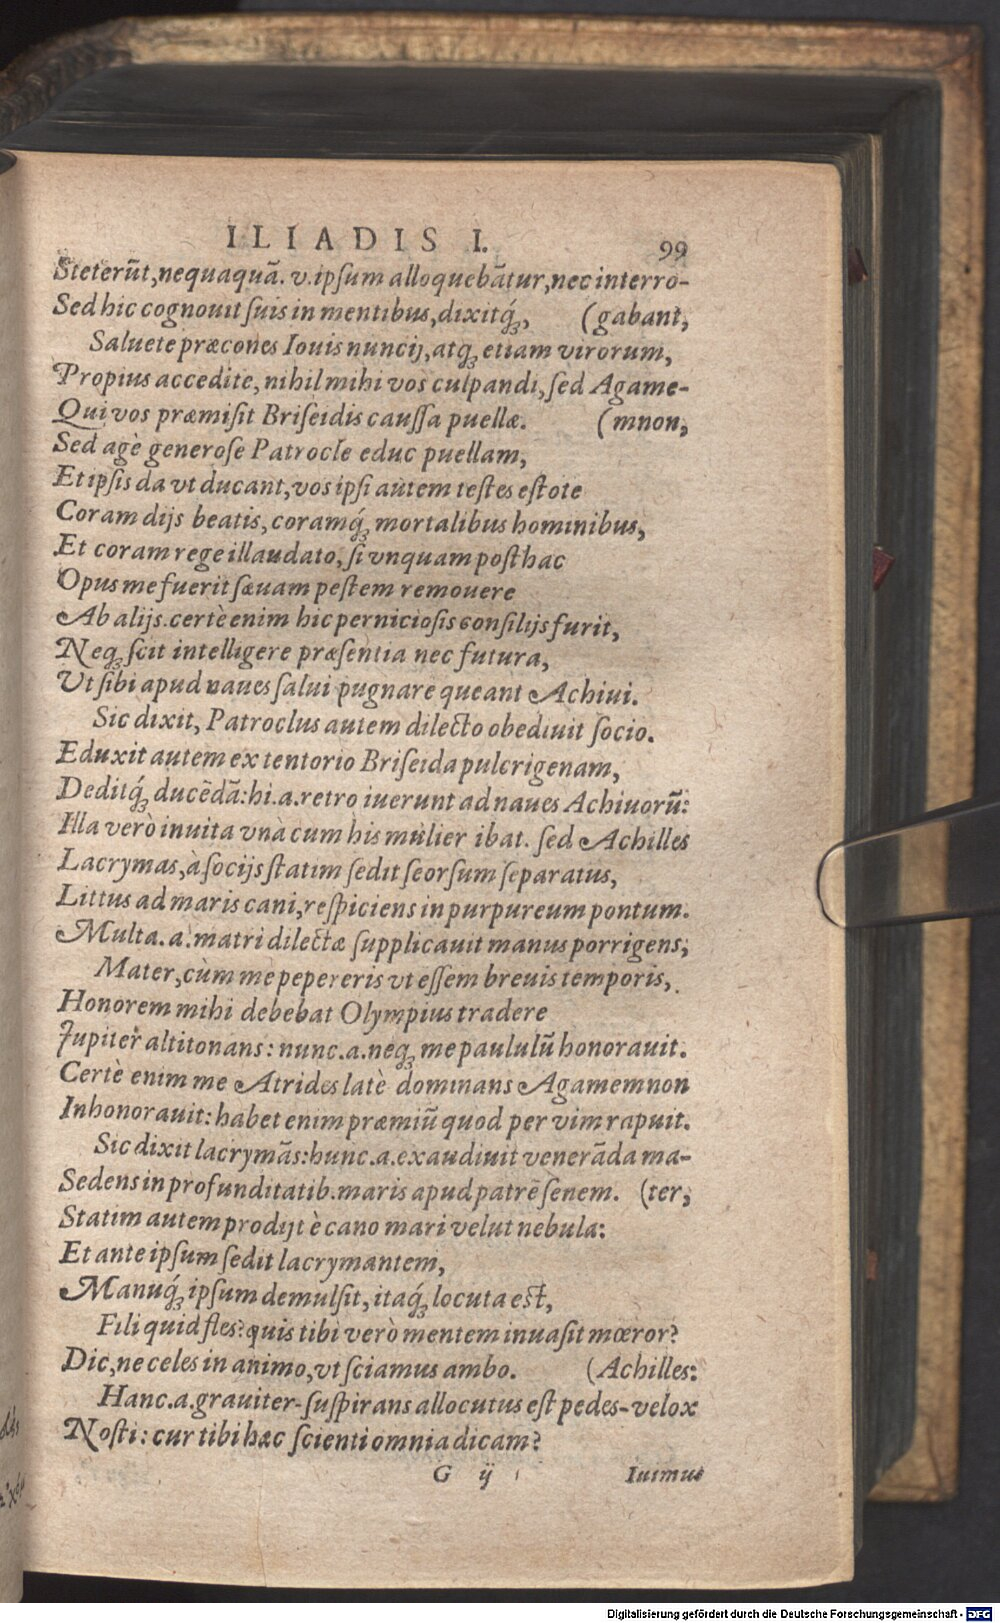 ILIADIS I. 99
Steterũt, nequaquã. v. ipsum alloquebãtur, nec interro-
Sed hic cognouit suis in mentibus, dixitq́ꝫ, (gabant,
Saluete præcones Iouis nuncij, atqꝫ etiam virorum,
Propius accedite, nihil mihi vos culpandi, sed Agame-
Qui vos præmisit Briseidis caussa puellæ. (mnon,
Sed agè generose Patrocle educ puellam,
Et ipsis da vt ducant, vos ipsi autem testes estote
Coram dijs beatis, coramq́ꝫ mortalibus hominibus,
Et coram rege illaudato, si vnquam posthac
Opus me fuerit sæuam pestem remouere
Ab alijs. certè enim hic perniciosis consilijs furit,
Neqꝫ scit intelligere præsentia nec futura,
Vt sibi apud naues salui pugnare queant Achiui.
Sic dixit, Patroclus autem dilecto obediuit socio.
Eduxit autem ex tentorio Briseida pulcrigenam,
Deditq́ꝫ ducẽdã: hi. a. retro iuerunt ad naues Achiuorũ:
Illa verò inuita vnà cum his mulier ibat. sed Achilles
Lacrymas, à socijs statim sedit seorsum separatus,
Littus ad maris cani, respiciens in purpureum pontum.
Multa. a. matri dilectæ supplicauit manus porrigens,
Mater, cùm me pepereris vt essem breuis temporis,
Honorem mihi debebat Olympius tradere
Iupiter altitonans: nunc. a. neqꝫ me paululũ honorauit.
Certè enim me Atrides latè dominans Agamemnon
Inhonorauit: habet enim præmiũ quod per vim rapuit.
Sic dixit lacrymãs: hunc. a. exaudiuit venerãda ma-
Sedens in profunditatib. maris apud patrẽ senem. (ter,
Statim autem prodijt è cano mari velut nebula:
Et ante ipsum sedit lacrymantem,
Manuq́ꝫ ipsum demulsit, itaq́ꝫ locuta est,
Fili quid fles? quis tibi verò mentem inuasit mœror?
Dic, ne celes in animo, vt sciamus ambo. (Achilles:
Hanc. a. grauiter-suspirans allocutus est pedes-velox
Nosti: cur tibi hæc scienti omnia dicam?
G ij Iuimus
Digitalisierung gefördert durch die Deutsche Forschungsgemeinschaft - DFG